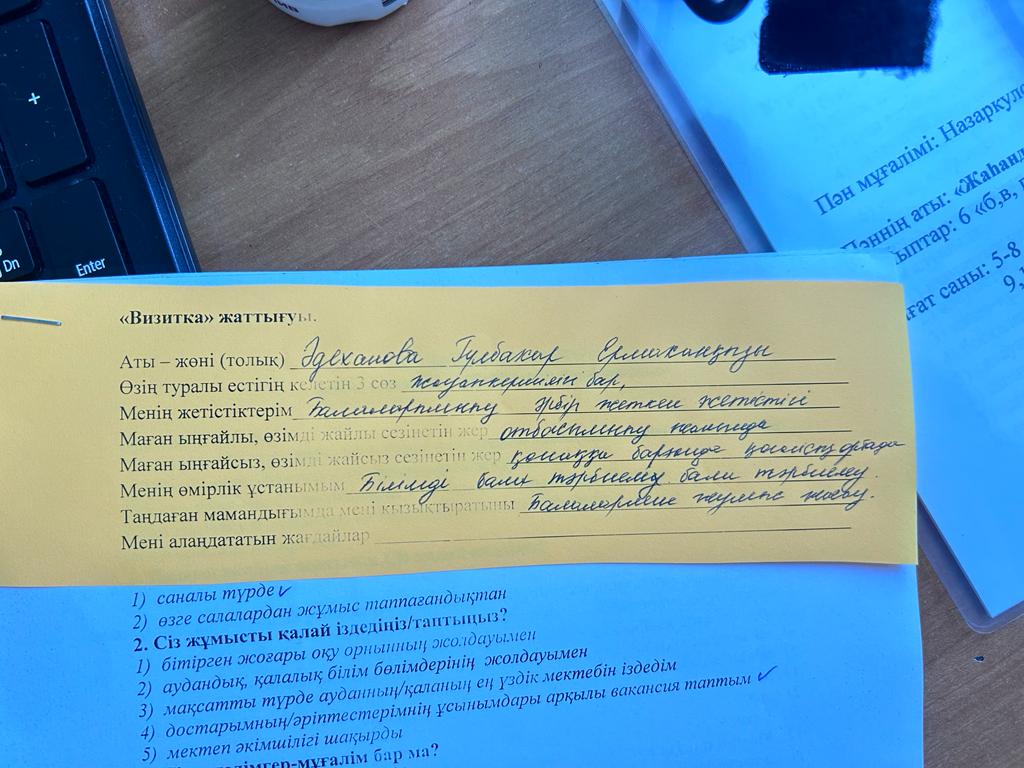 +
Dn
Enter
Пән мұғалімі: Назаркул
Пәннің аты: «Жаһанд
ыптар: 6 «б,в,
ғат саны: 5-8
9,
«Визитка» жаттығуы.
Аты – жөні (толық) Әдеханова Гүлбахар Ермаханқызы
Өзің туралы естігің келетін 3 сөз жауапкершілігі бар,
Менің жетістіктерім Балалардың әрбір жеткен жетістігі
Маған ыңғайлы, өзімді жайлы сезінетін жер отбасымның жанында
Маған ыңғайсыз, өзімді жайсыз сезінетін жер қонаққа барғанда
Менің өмірлік ұстанымым Білімді бала тәрбиелеу бала тәрбиелеу.
Таңдаған мамандығымда мені қызықтыратыны Балалармен жұмыс жасау.
Мені алаңдататын жағдайлар
1) саналы түрде ✓
2) өзге салалардан жұмыс таппағандықтан
2. Сіз жұмысты қалай іздедіңіз/таптыңыз?
1) бітірген жоғары оқу орнының жолдауымен
2) аудандық, қалалық білім бөлімдерінің жолдауымен
3) мақсатты түрде ауданның/қаланың ең үздік мектебін іздедім
4) достарымның/әріптестерімнің ұсынымдары арқылы вакансия таптым ✓
5) мектеп әкімшілігі шақырды
лімгер-мұғалім бар ма?